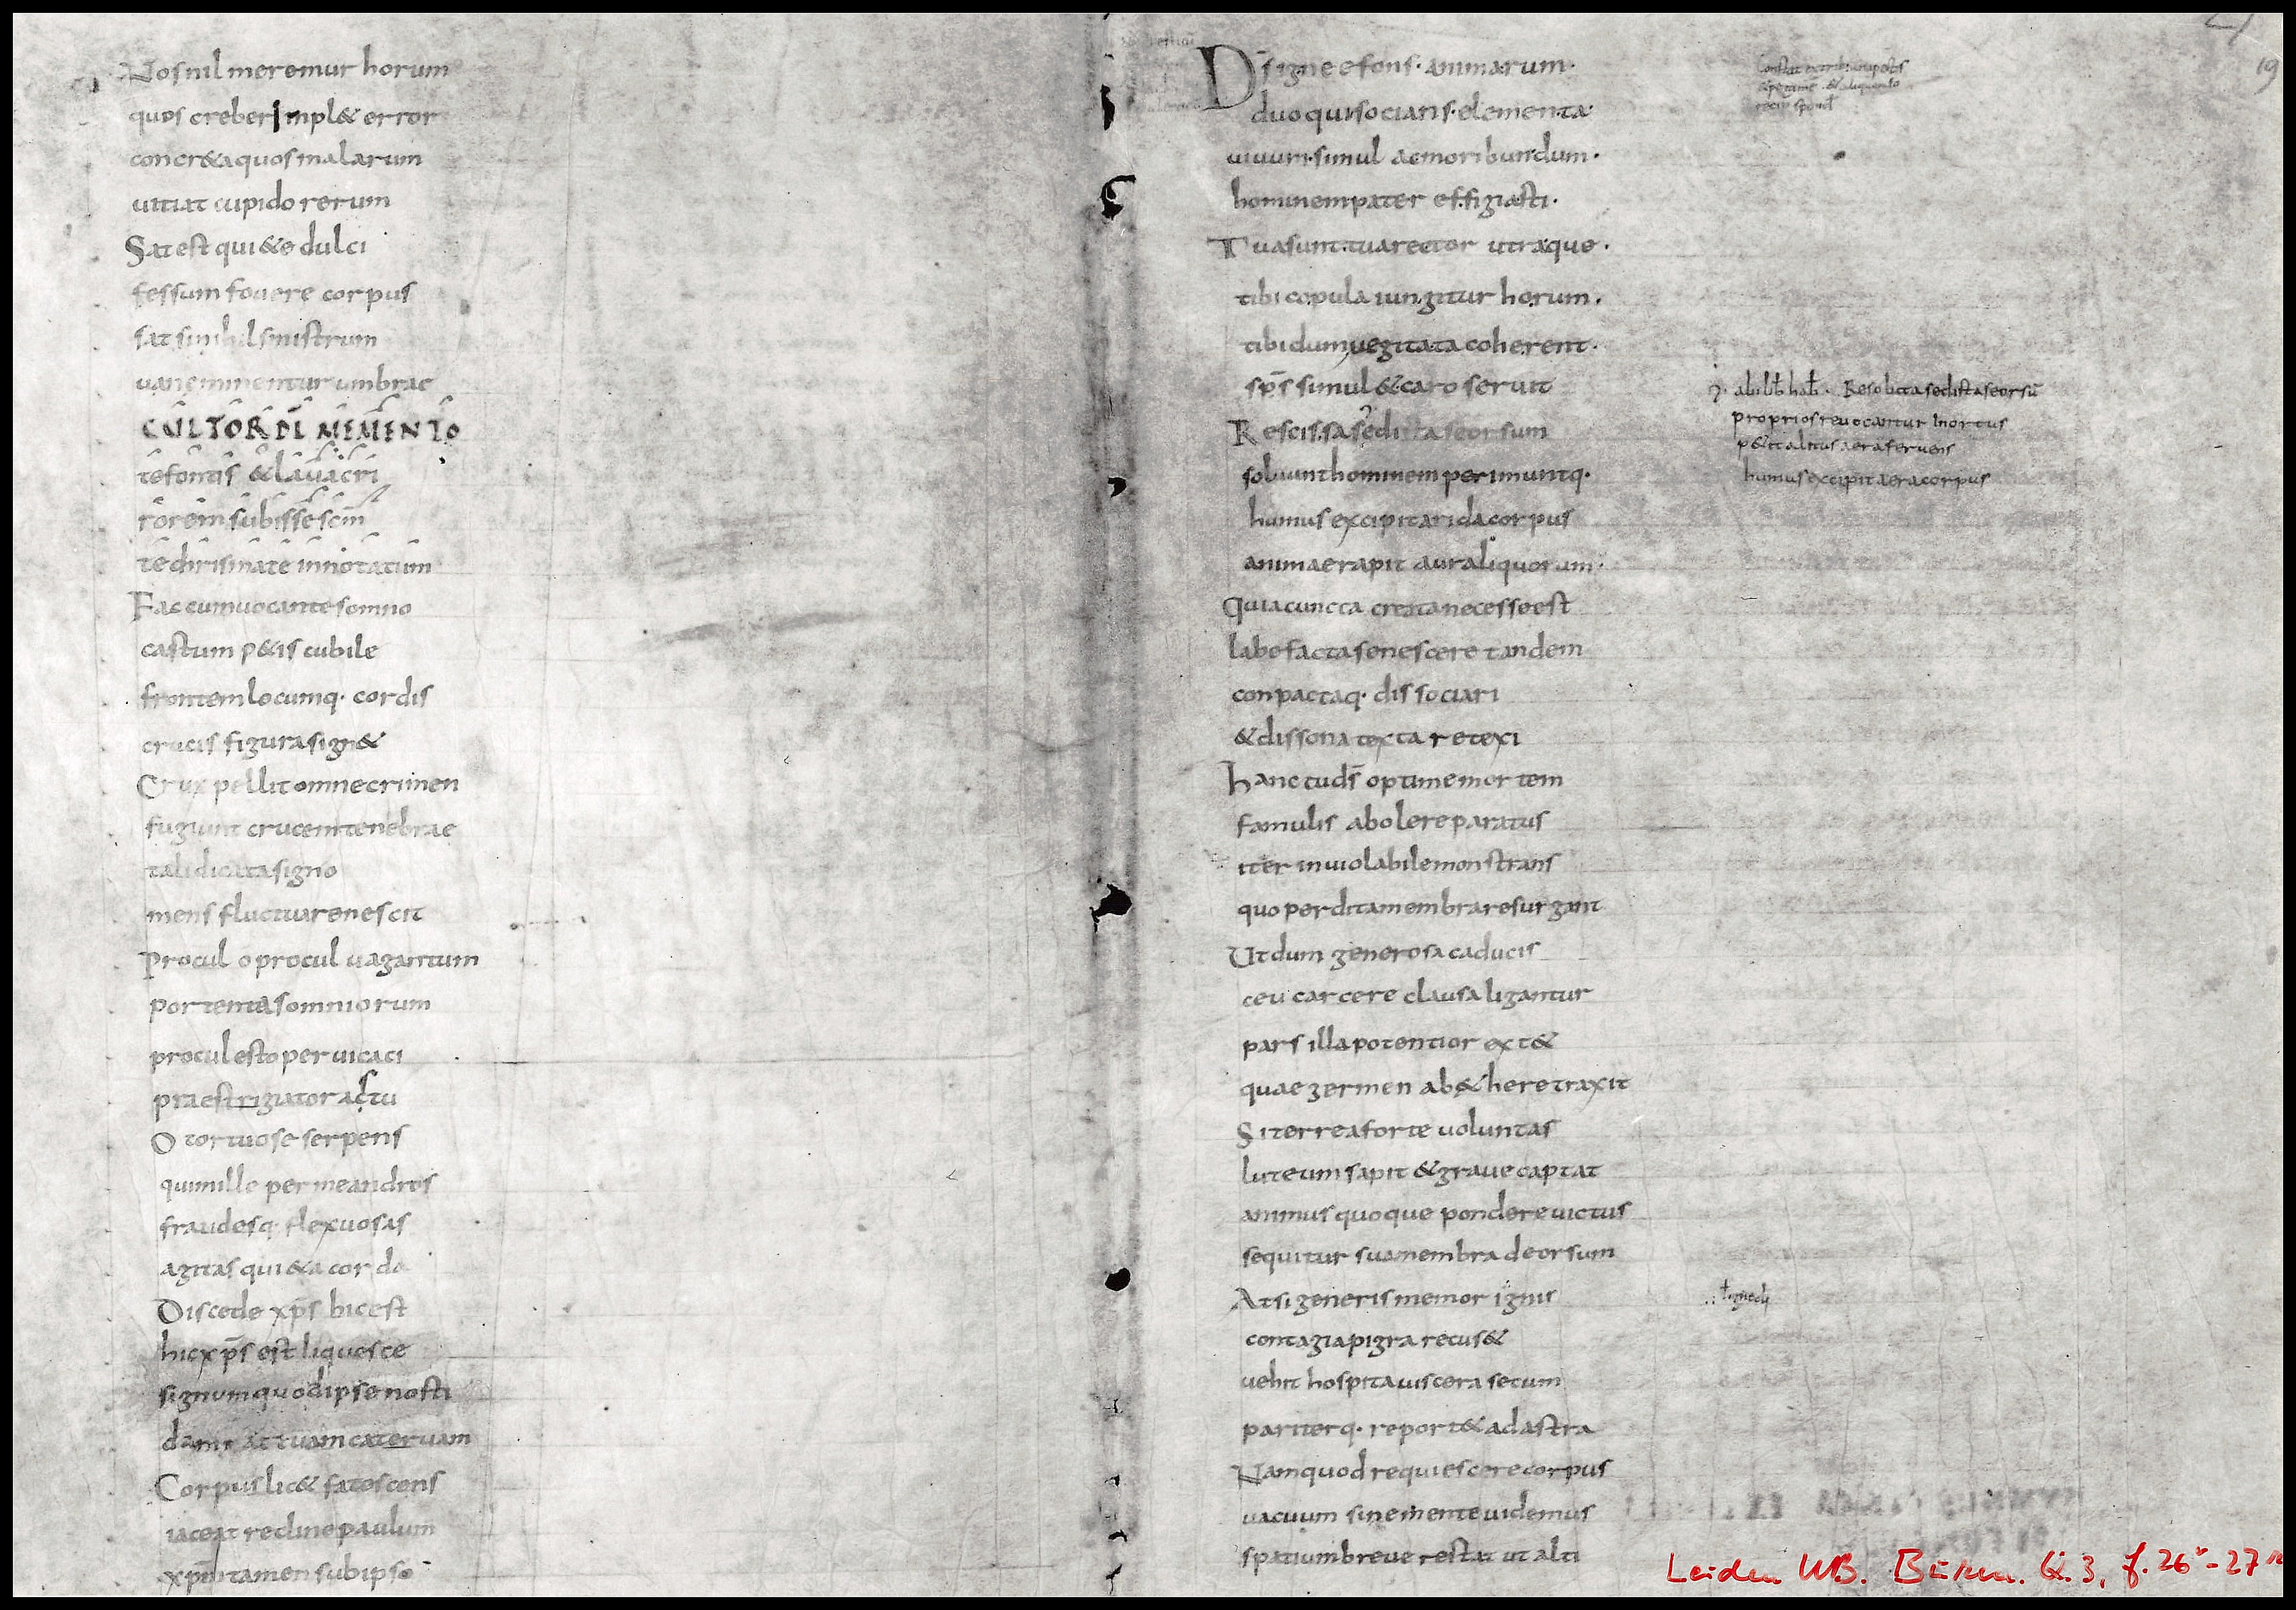 Nos nil meremur horum
quos creber Impl& error
concr&a quos malarum
uitiat cupido rerum
Sat est qui&e dulci
fessum fouere corpus
sat si nihil sinistrum
uanae minentur umbrae
CULTOR DĪ MEMENTO
te fontis & lauacri
rorem subisse scm̄
te chrismate innotatum
Fac cum uocante somno
castum p&is cubile
frontem locumq· cordis
crucis figura sign&
Crux pellit omne crimen
fugiunt crucem tenebrae
tali dicata signo
mens fluctuare nescit
Procul o procul uagantum
portenta somniorum
procul esto peruicaci
praestrigiator actu
O tortuose serpens
qui mille per meandros
fraudesq· flexuosas
agitas qui&a corda
Discede xp̄s hic est
hic xp̄s est liquesce
signum quod ipse nosti
damnat tuam cateruam
Corpus lic& fatescens
iaceat recline paulum
xp̄m tamen sub ipso
Ds̄ igne e fons· animarum·
duo qui socians· elementa·
uiuum· simul ac moribundum·
hominem pater effigiasti·
Tua sunt· tua rector utraque·
tibi copula iungitur horum·
tibi dum uegitata coherent·
sp̄s simul & caro seruit
Rescissa sed ista seorsum
soluunt hominem perimuntq·
humus excipit arida corpus
animae rapit aura liquorum·
Quia cuncta creata necesse est
labefacta senescere tandem
conpactaq· dissociari
& dissona texta retexi
hanc tu ds̄ optime mortem
famulis abolere paratus
iter inuiolabile monstrans
quo perdita membra resurgant
Ut dum generosa caducis
ceu carcere clausa ligantur
pars illa potentior ext&
quae germen ab &here traxit
Si terrea forte uoluntas
luteum sapit & graue captat
animus quoque pondere uictus
sequitur sua membra deorsum
At si generis memor ignis
contagia pigra recus&
uehit hospita uiscera secum
pariterq· report& ad astra
Nam quod requiescere corpus
uacuum sine mente uidemus
spatium breue restat ut alti
19
abi lib̄ hab̄· Resoluta sed ista seorsū
proprios reuocantur In ortus
p&it alitus aera feruens
humus excipit aera corpus
Leiden UB. Burm. Q. 3, f. 26v-27r